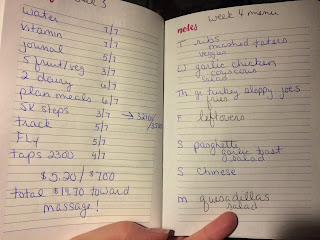 water 7/7
vitamin 7/7
journal 5/7
5 fruit/veg 3/7
2 dairy 4/7
plan meals 6/7
5K steps 3/7
track 5/7
FLY 5/7
taps 2300 4/7
$5.20 / $7.00
total $19.70 toward
massage!
notes week 4 menu
T ribs
mashed taters
veggies
W garlic chicken
couscous
salad
Th gr turkey sloppy joes
fries
F leftovers
S spaghetti
garlic toast
salad
S Chinese
M quesadillas
salad